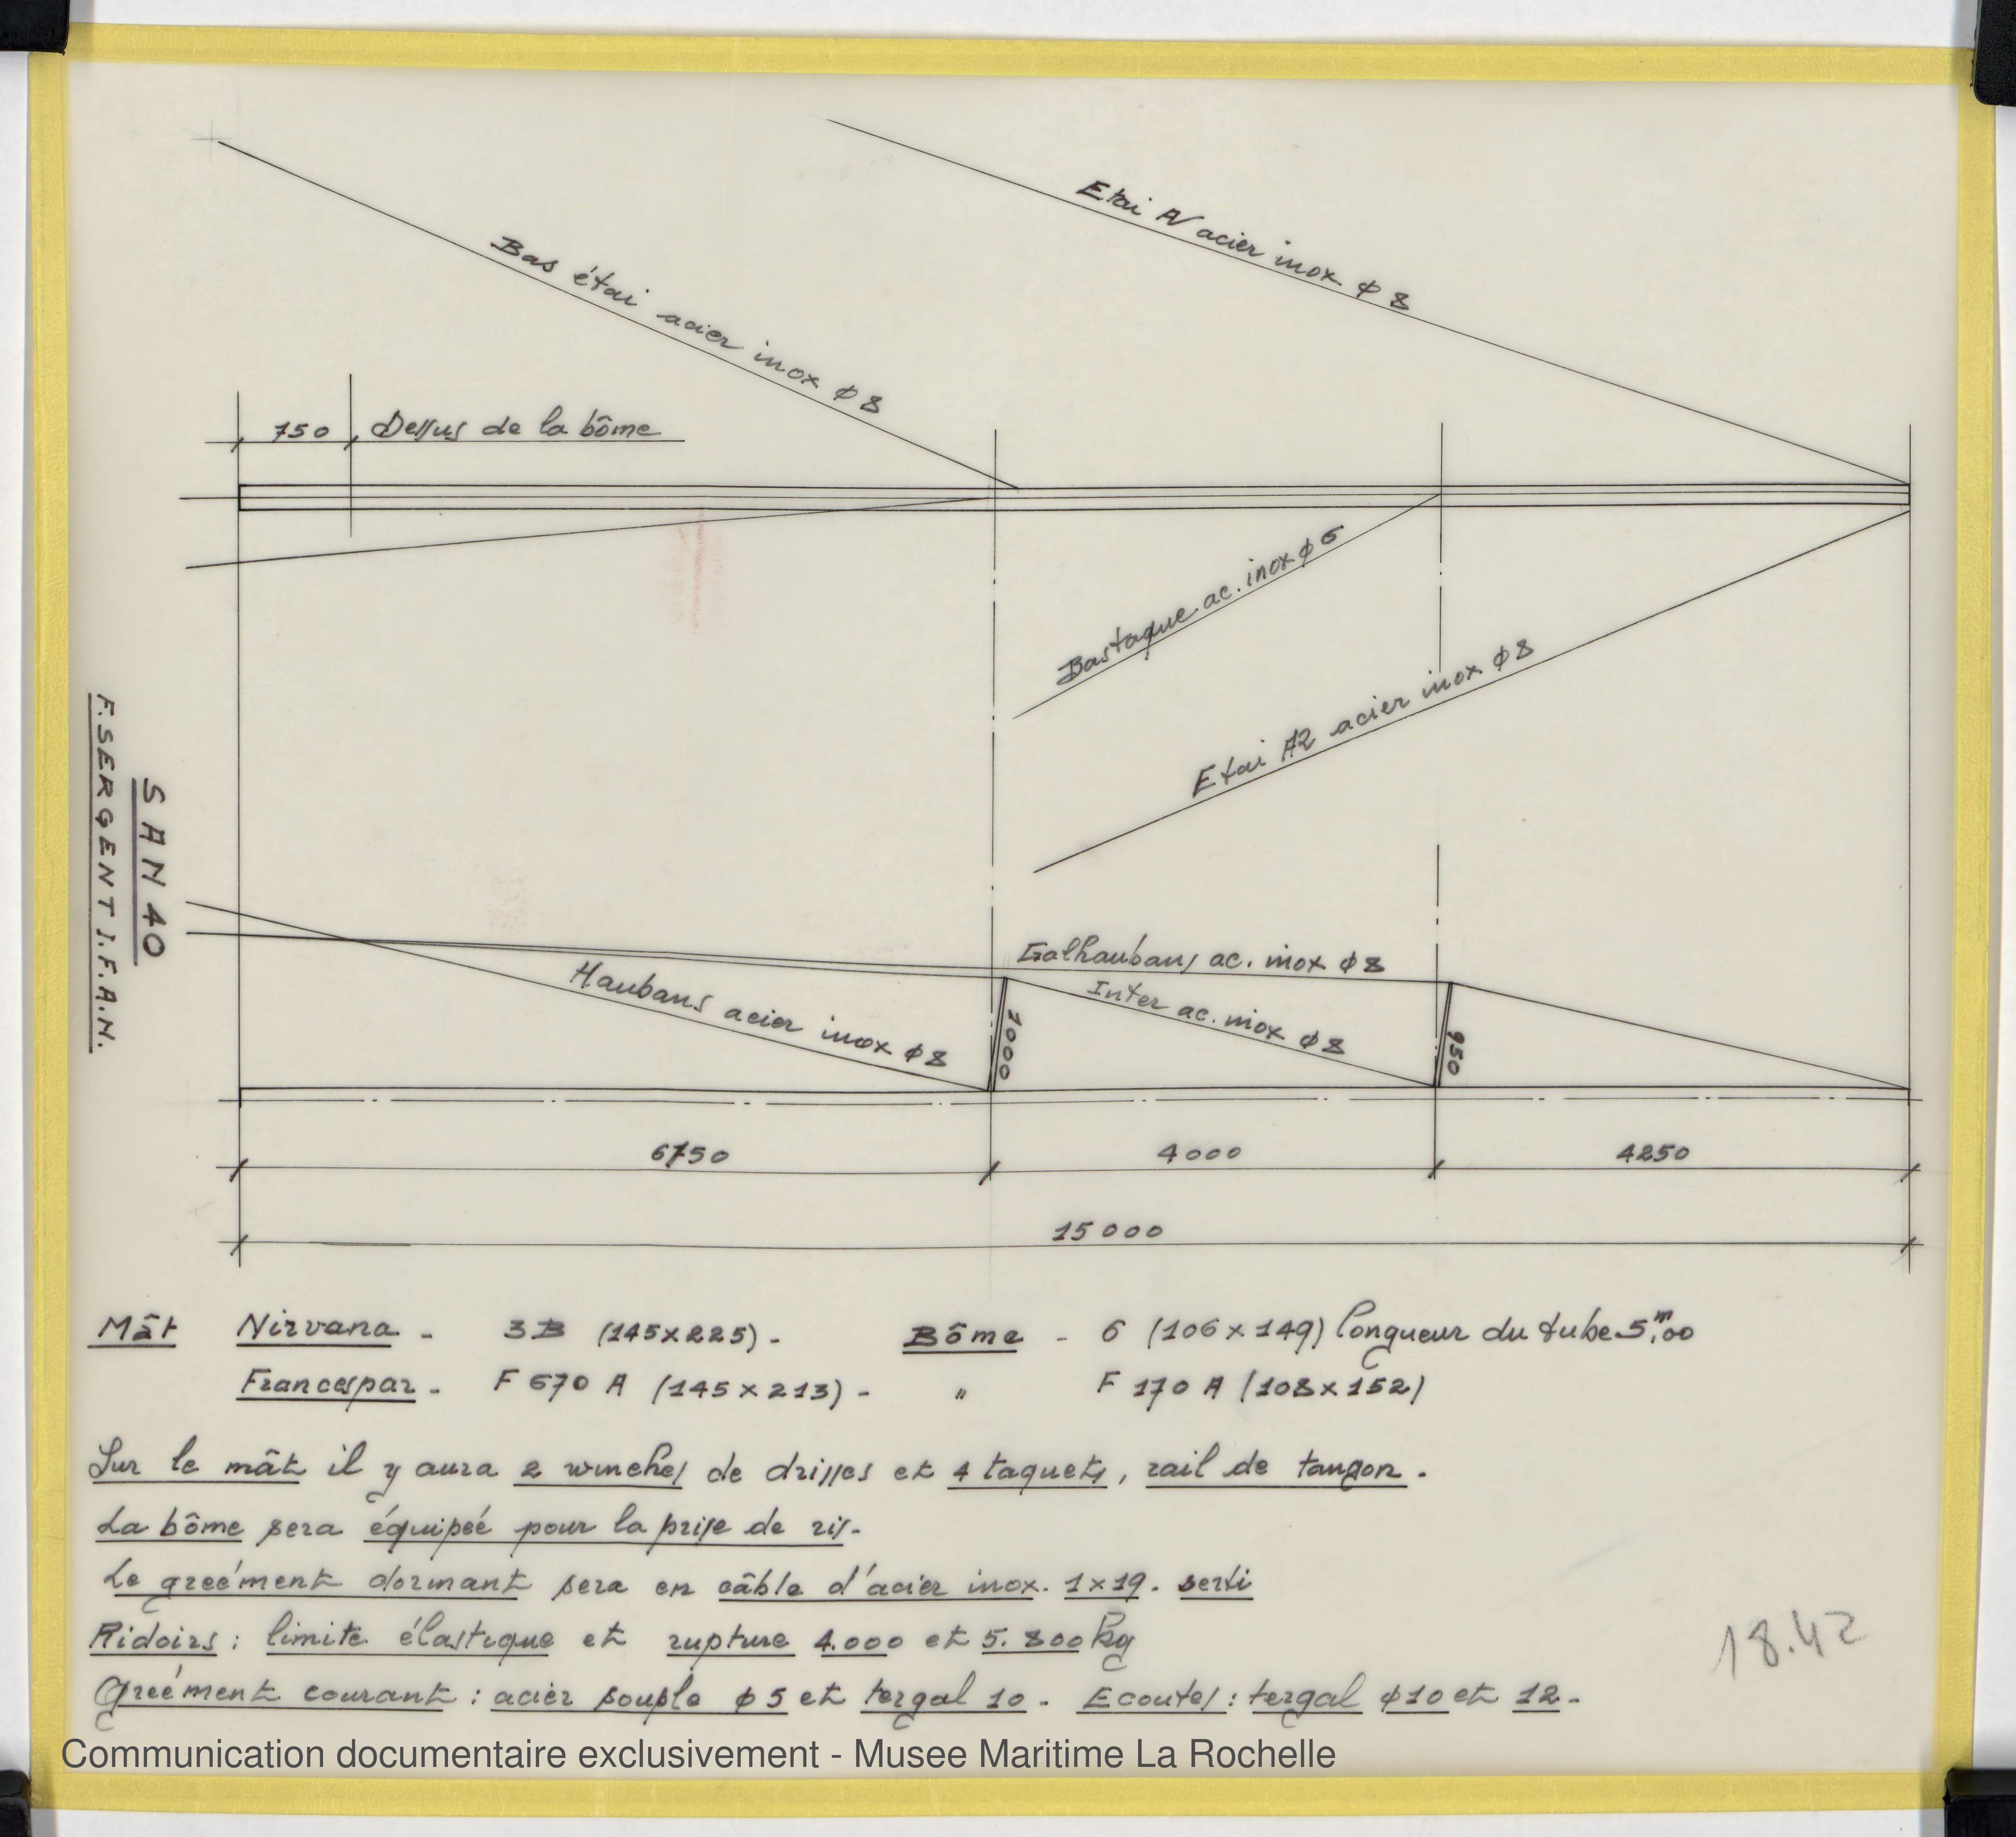 Etai AV acier inox φ 8
Bas étai acier inox φ 8
750 Dessus de la bôme
Bastaque ac. inox φ 6
Etai AR acier inox φ 8
SAN 40
F. SERGENT I.F.A.N.
Galhaubans ac. inox φ 8
Haubans acier inox φ 8
Inter ac. inox φ 8
1000
950
6750 4000 4250
15000
Mât Nirvana - 3B (145x225) - Bôme - 6 (106 x 149) longueur du tube 5,m00
Francespar - F 670 A (145 x 213) - " F 170 A (108x152)
Sur le mât il y aura 2 winches de drisses et 4 taquets, rail de tangon.
La bôme sera équipeé pour la prise de ris.
Le greément dormant sera en câble d'acier inox. 1x19. serti
Ridoirs : limite élastique et rupture 4.000 et 5.800 kg
Greément courant : acier souple φ 5 et tergal 10 - Ecoutes : tergal φ 10 et 12 -
18.42
Communication documentaire exclusivement - Musee Maritime La Rochelle